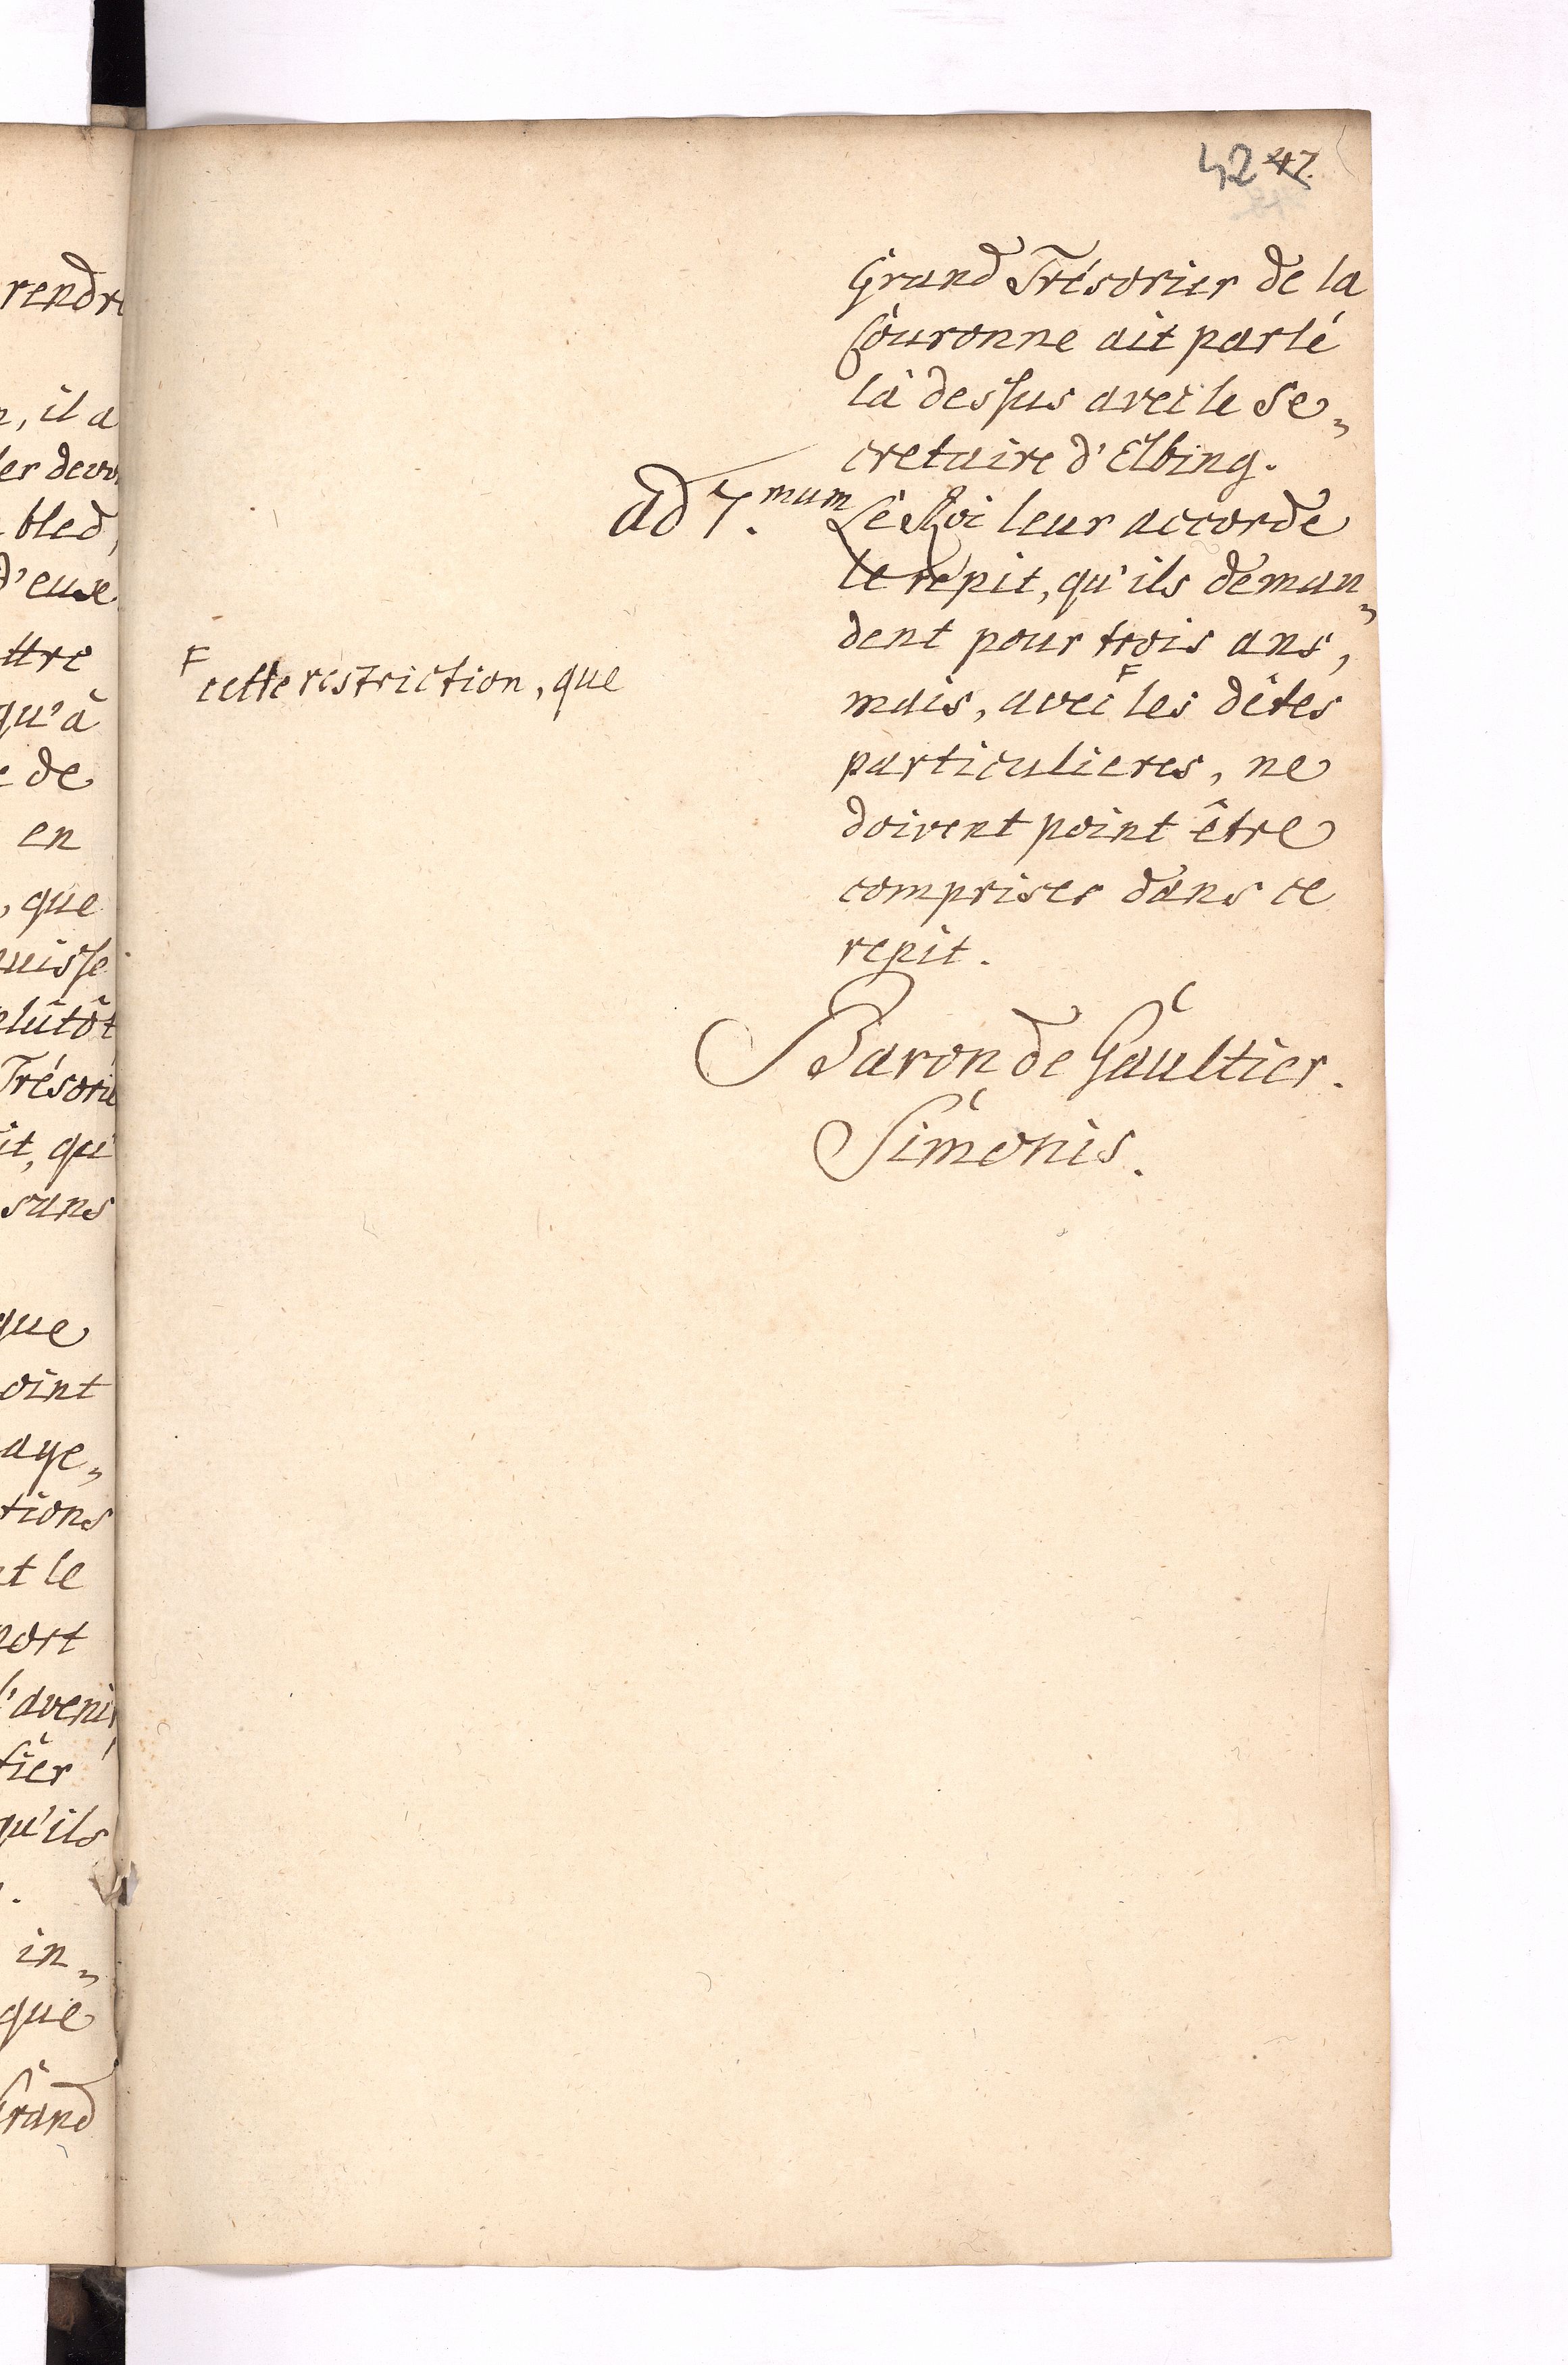 rendre
, il a
bled,
d'eux
ttre
qu'à
de
en
, que
uisse
plûtôt
Trésorie
it, qu'
sans
que
oint
aye„
tions
t le
port
l'avenir,
fier
qu'ils
in„
que
Grand
42 47.
Grand Trésorier de la
Couronne ait parlé
là dessus avec le Se„
cretaire d'Elbing.
ad 7.mum Le Roi leur accorde
le repit, qu'ils deman„
dent pour trois ans,
mais, avec F les dêtes
F cette restriction, que
particulieres, ne
doivent point être
comprises dans ce
repit.
Baron de Gaultier.
Simonis.